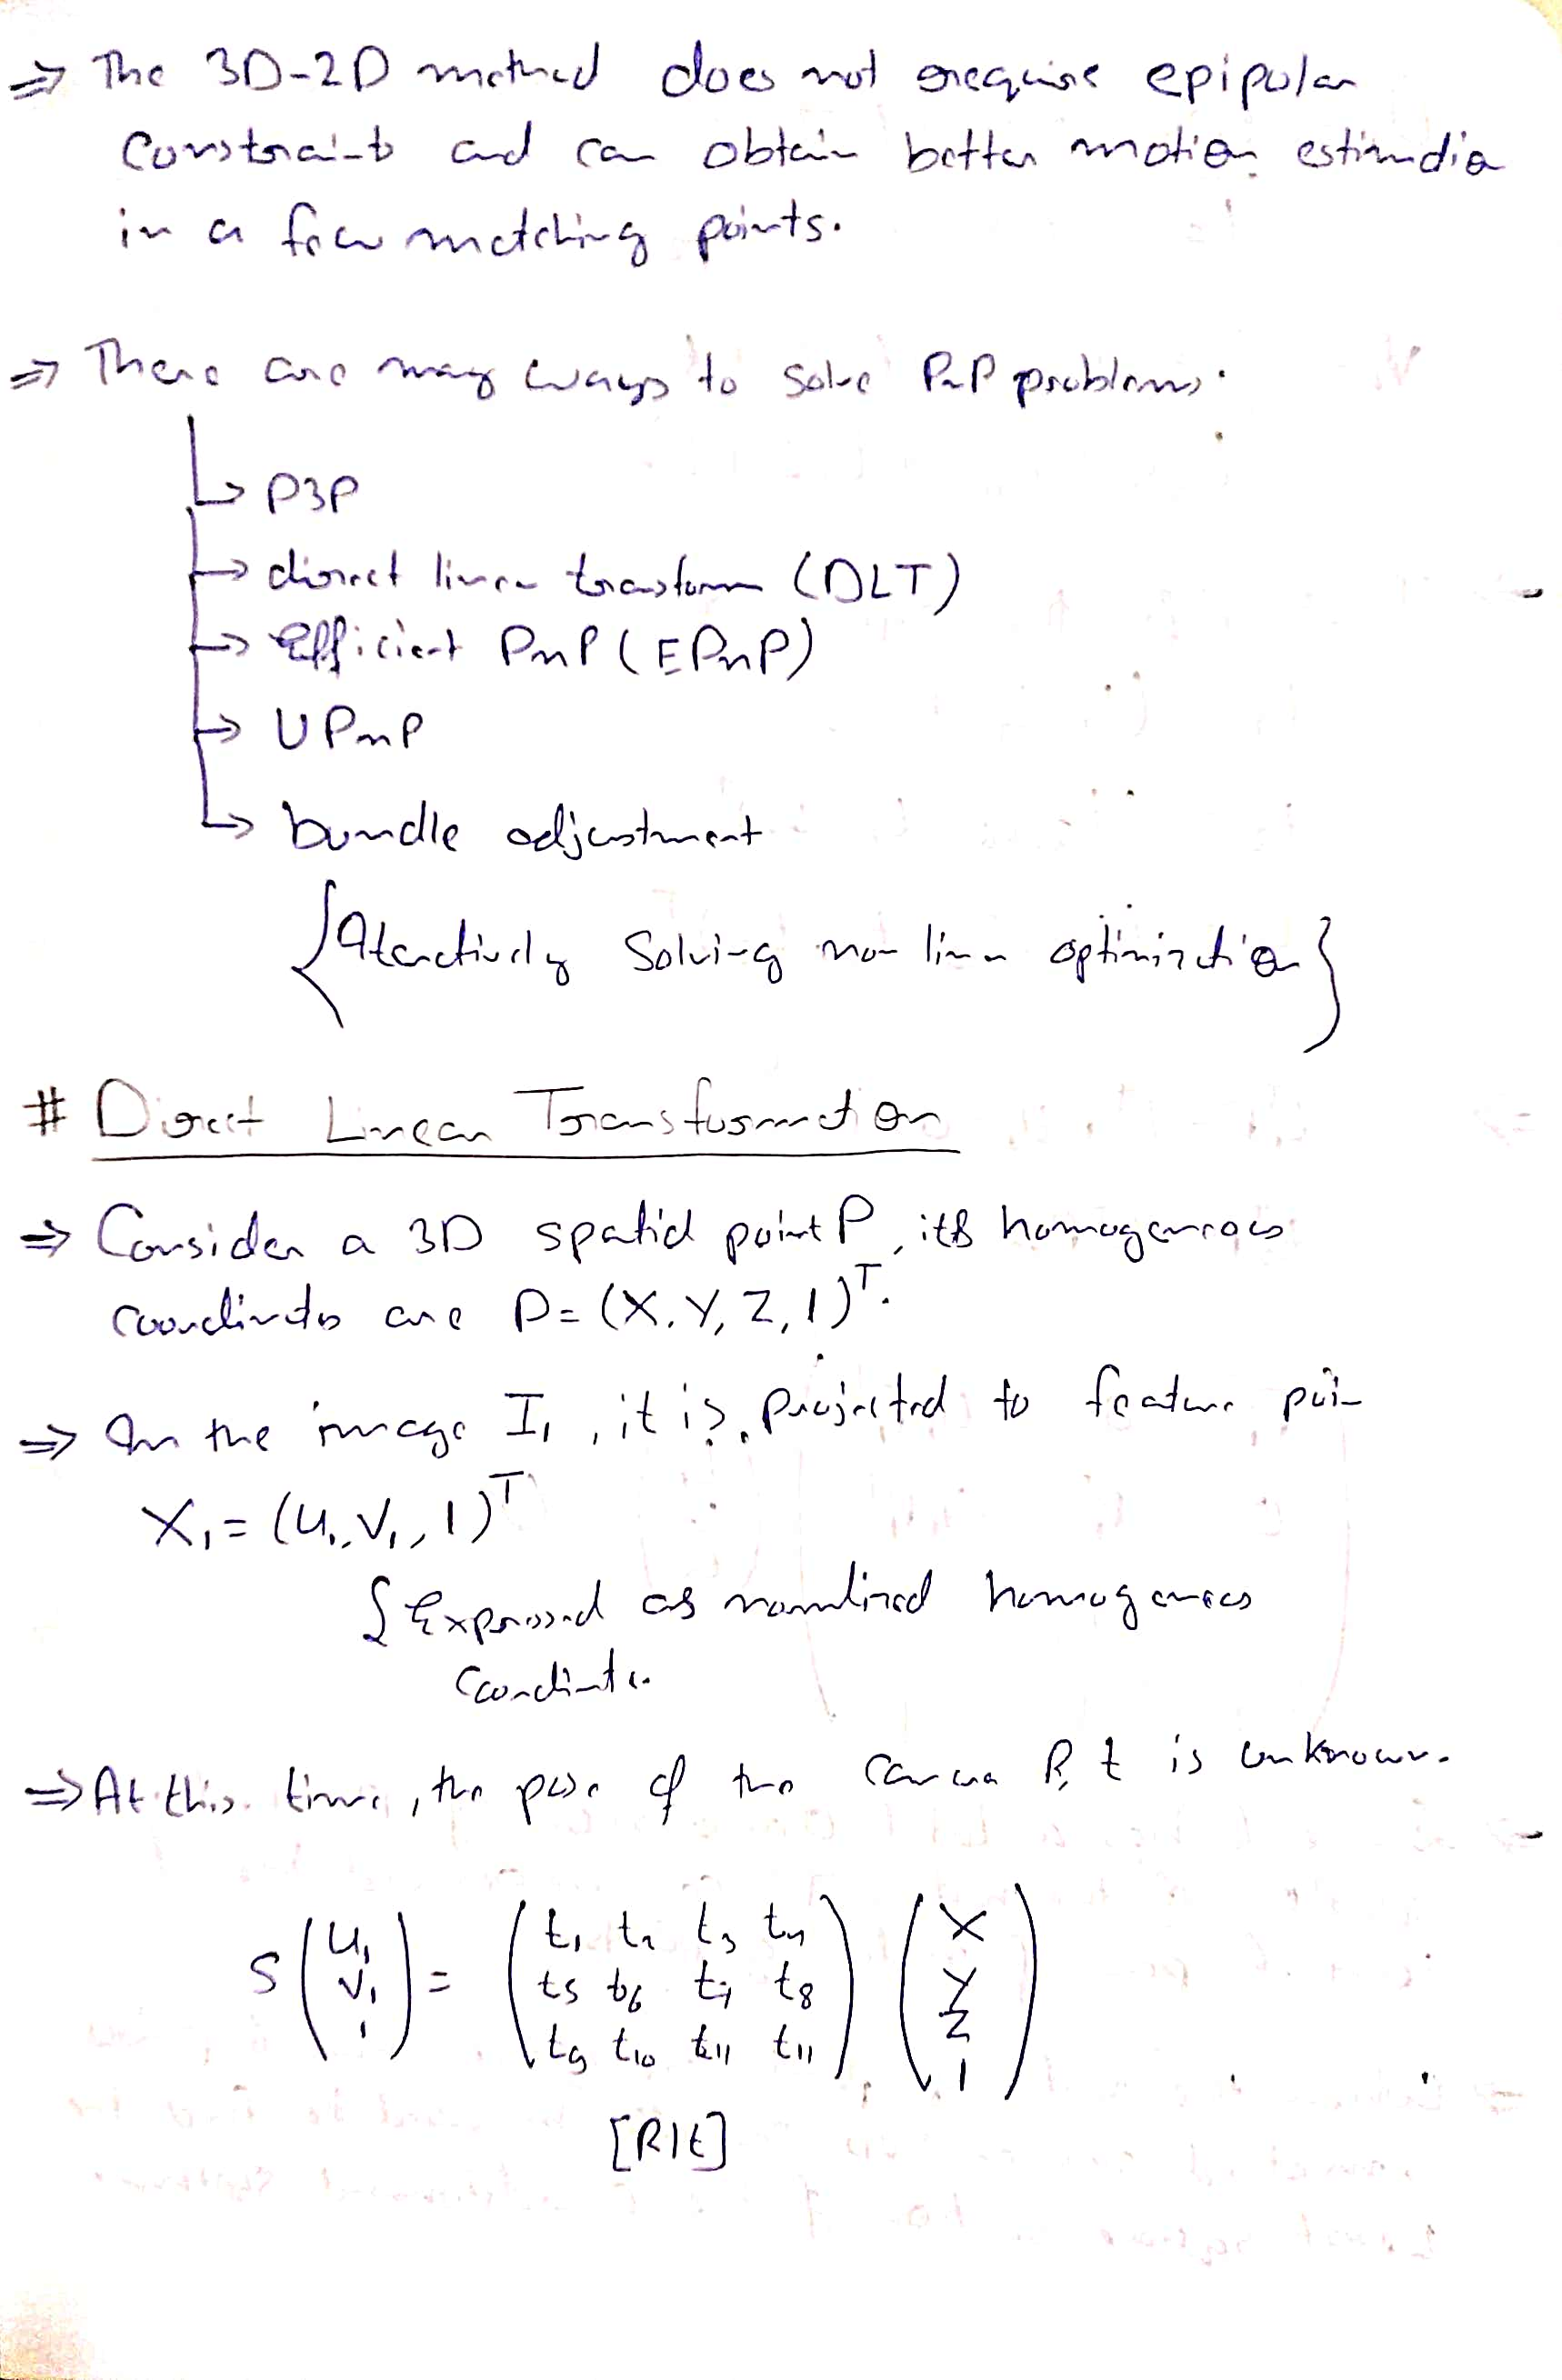 ⇒ The 3D-2D method does not require epipolar
constraints and can obtain better motion estimation
in a few matching points.
⇒ There are many ways to solve PnP problems.
↳ P3P
→ direct linear transform (DLT)
→ Efficient PnP (EPnP)
→ UPnP
↳ bundle adjustment
{Iteratively Solving non linear optimization}
# Direct Linear Transformation
⇒ Consider a 3D spatial point P, its homogeneous
coordinates are P = (X, Y, Z, 1)ᵀ.
⇒ In the image I₁, it is projected to feature poin
X₁ = (u₁, v₁, 1)ᵀ
{Expressed as normalized homogeneous
coordinates
⇒ At this time, the pose of the camera R, t is unknown.
S (u₁ v₁ 1) = (t₁ t₂ t₃ t₄ (X
t₅ t₆ t₇ t₈ Y
t₉ t₁₀ t₁₁ t₁₁) Z
1)
[R|t]